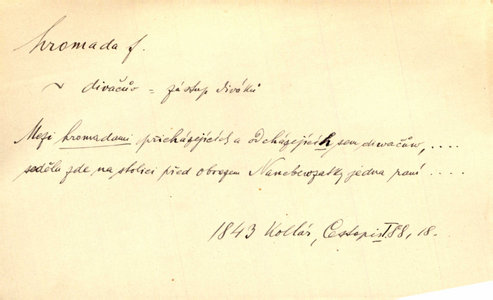 hromada f.
~ divačův = zástup diváků
Mezi hromadami přicházejících a odcházejících sem divačův, ....
seděla zde na stolici před obrazem Nanebevzatky jedna paní ....
1843 Kollár, Cestopis I 88, 18.